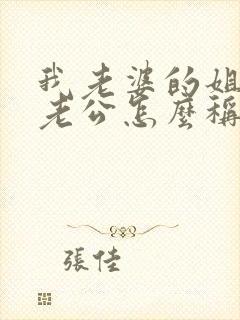 我老婆的姐
老公怎麼稱
張佳